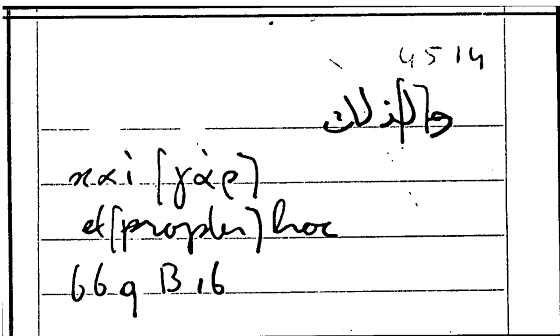 4514
و[لذلك
καὶ [γὰρ]
et [propter] hoc
669 B 16